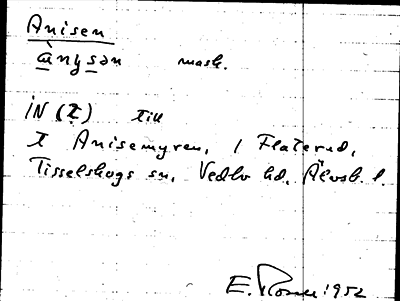 Anisen
ànysən mask.
IN (I) till
I Anisemyren, 1 Flaterud,
Tisselskogs sn, Vedbo hd, Älvsb. l.
E. 1952